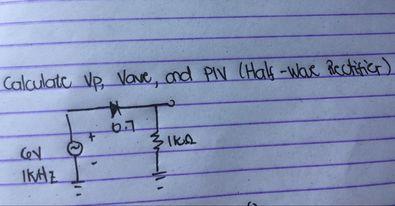 Calculate Vp, Vave, and PIV (Half-Wave Rectifier)
+
0.7
1kΩ
6V
-
1KHz